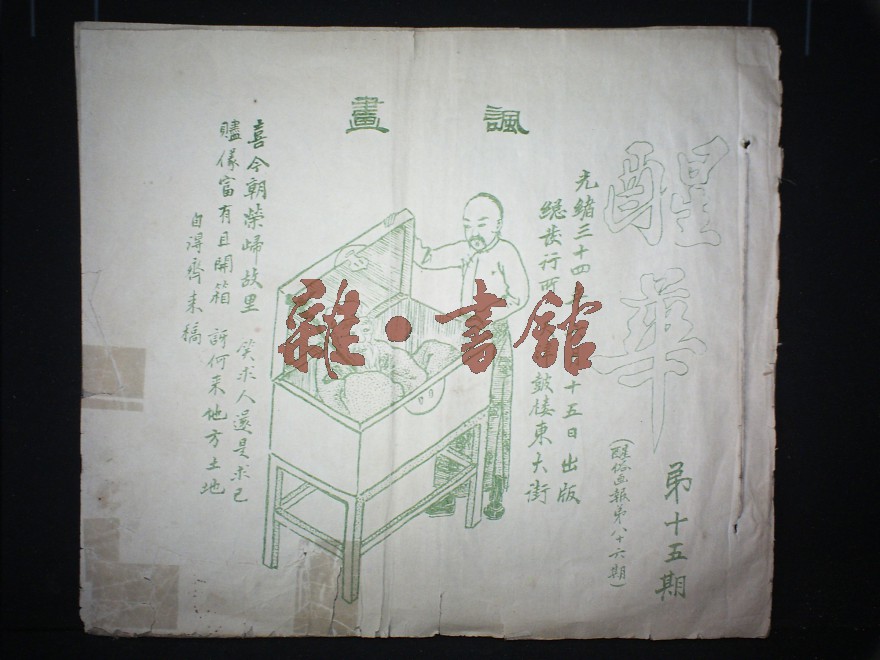 醒華
第十五期
(醒俗画報第八十六期)
光緒三十四
十五日出版
總發行所
鼓樓東大街
諷畫
喜今朝榮歸故里 笑求人還是求己
賍儀富有且開箱 訝何来地方土地
自得齊来稿
雜·書館